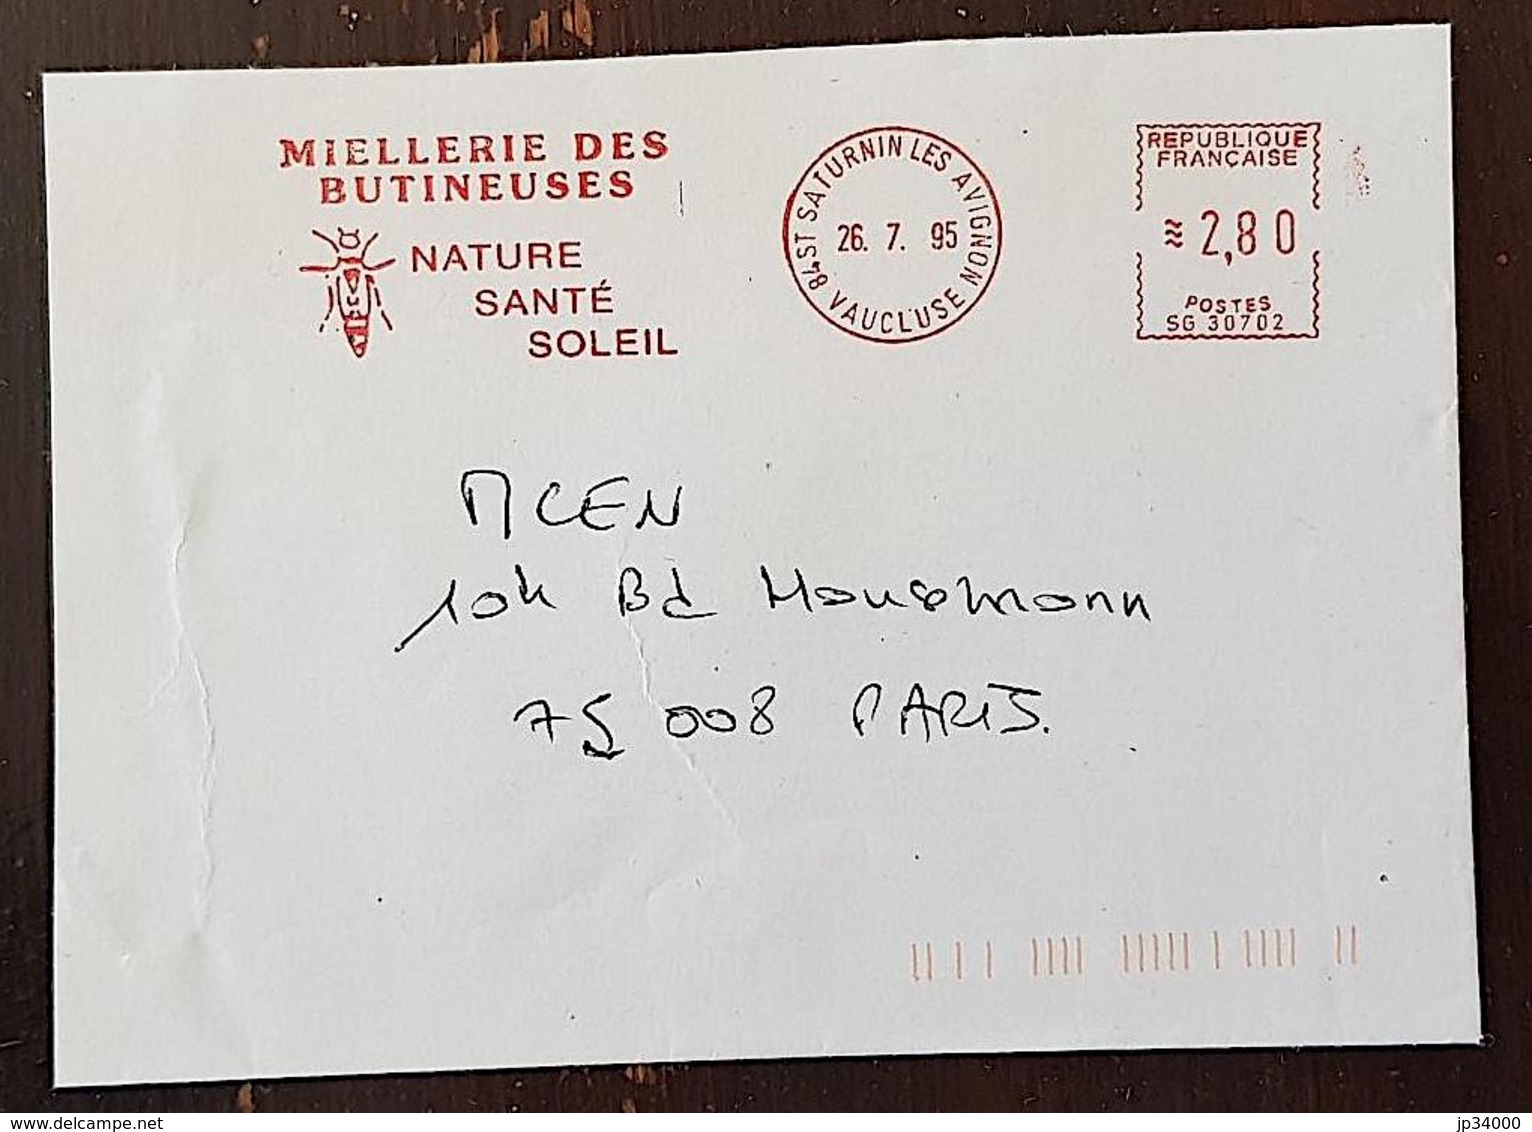 MIELLERIE DES
BUTINEUSES
NATURE
SANTÉ
SOLEIL
84 ST SATURNIN LES AVIGNON VAUCLUSE
26. 7. 95
REPUBLIQUE
FRANÇAISE
≋ 2,80
POSTES
SG 30702
MCEN
104 Bd Haussmann
75 008 PARIS.
www.delcampe.net
jp34000